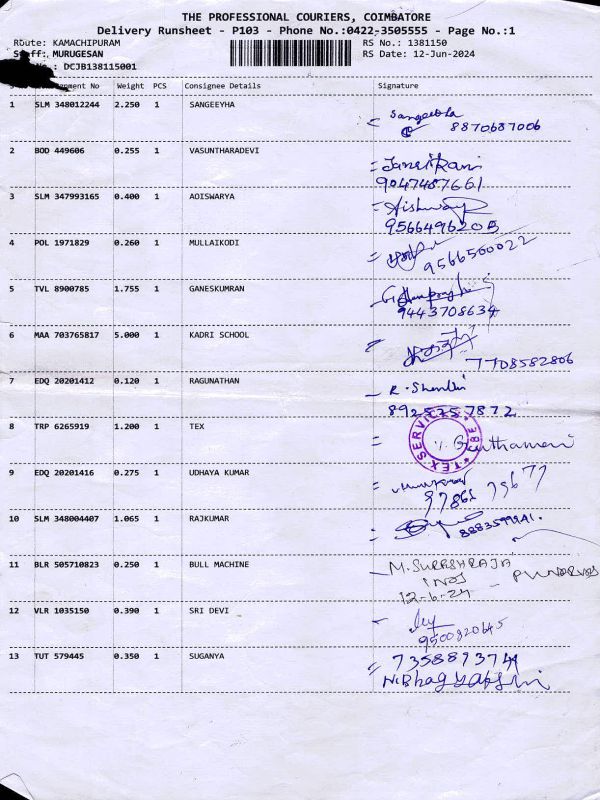 THE PROFESSIONAL COURIERS, COIMBATORE
Delivery Runsheet - P103 - Phone No.:0422-3505555 - Page No.:1
Route: KAMACHIPURAM RS No.: 1381150
Staff: MURUGESAN RS Date: 12-Jun-2024
No.: DCJB138115001
No Weight PCS Consignee Details Signature
1 SLM 348012244 2.250 1 SANGEEYHA Sangeetha
8870687006
2 BOD 449606 0.255 1 VASUNTHARADEVI
9047487661
3 SLM 347993165 0.400 1 AOISWARYA Aishwarya
9566496205
4 POL 1971829 0.260 1 MULLAIKODI 9566560022
5 TVL 8900785 1.755 1 GANESKUMRAN
9443708634
6 MAA 703765817 5.000 1 KADRI SCHOOL
7708582806
7 EDQ 20201412 0.120 1 RAGUNATHAN R. Shanthi
8925257872
8 TRP 6265919 1.200 1 TEX TEX SERVICES CBE
9 EDQ 20201416 0.275 1 UDHAYA KUMAR
10 SLM 348004407 1.065 1 RAJKUMAR
11 BLR 505710823 0.250 1 BULL MACHINE M. SURESHRAJA
12-6-24
12 VLR 1035150 0.390 1 SRI DEVI
9500820645
13 TUT 579445 0.350 1 SUGANYA 7358893741